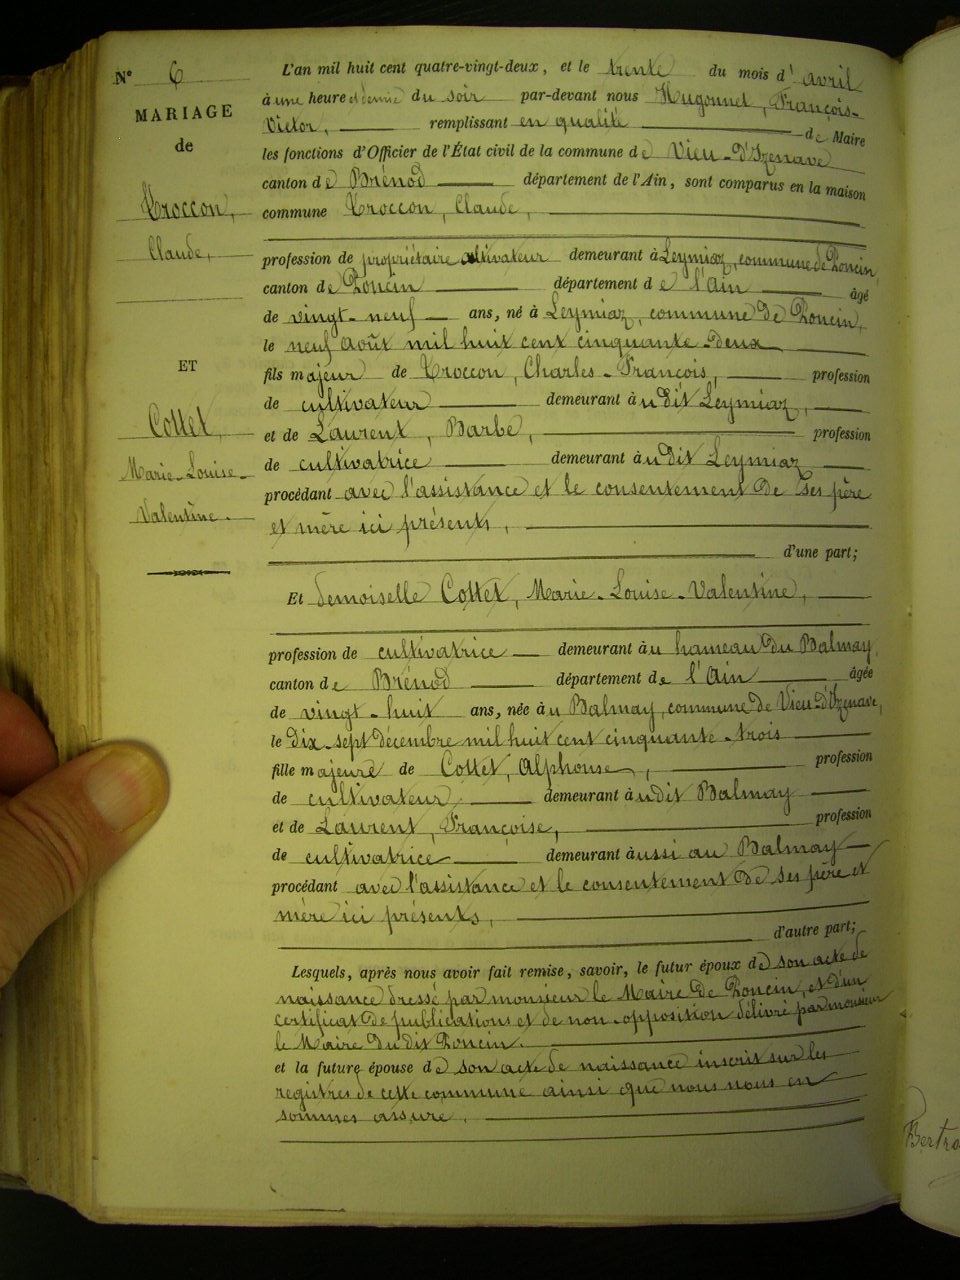 N° 6
MARIAGE
de
Troccon,
Claude,
ET
Cottet,
Marie-Louise-
Valentine.
L'an mil huit cent quatre-vingt-deux, et le trente du mois d'avril
à une heure et demie du soir par-devant nous Hugonnet, François-
Victor, remplissant en qualité de Maire
les fonctions d'Officier de l'État civil de la commune de Vieu-d'Izenave
canton de Brénod département de l'Ain, sont comparus en la maison
commune Troccon, Claude,
profession de propriétaire cultivateur demeurant à Leymiaz, commune de Poncin,
canton de Poncin département de l'Ain âgé
de vingt-neuf ans, né à Leymiaz, commune de Poncin,
le neuf août mil huit cent cinquante-deux
fils majeur de Troccon, Charles-François, profession
de cultivateur demeurant àudit Leymiaz,
et de Laurent, Barbe, profession
de cultivatrice demeurant àudit Leymiaz
procédant avec l'assistance et le consentement de ses père
et mère ici présents,
d'une part;
Et demoiselle Cottet, Marie-Louise-Valentine,
profession de cultivatrice demeurant àu hameau du Balmay,
canton de Brénod département de l'Ain âgée
de vingt-huit ans, née àu Balmay, commune de Vieu-d'Izenave,
le dix-sept décembre mil huit cent cinquante-trois
fille majeure de Cottet, Alphonse, profession
de cultivateur, demeurant àudit Balmay
et de Laurent, Françoise, profession
de cultivatrice demeurant àussi au Balmay
procédant avec l'assistance et le consentement de ses père et
mère ici présents,
d'autre part;
Lesquels, après nous avoir fait remise, savoir, le futur époux de son acte de
naissance dressé par monsieur le Maire de Poncin, et d'un
certificat de publications et de non-opposition délivré par monsieur
le Maire dudit Poncin.
et la future épouse de son acte de naissance inscrit sur les
registres de cette commune ainsi que nous nous en
sommes assuré.